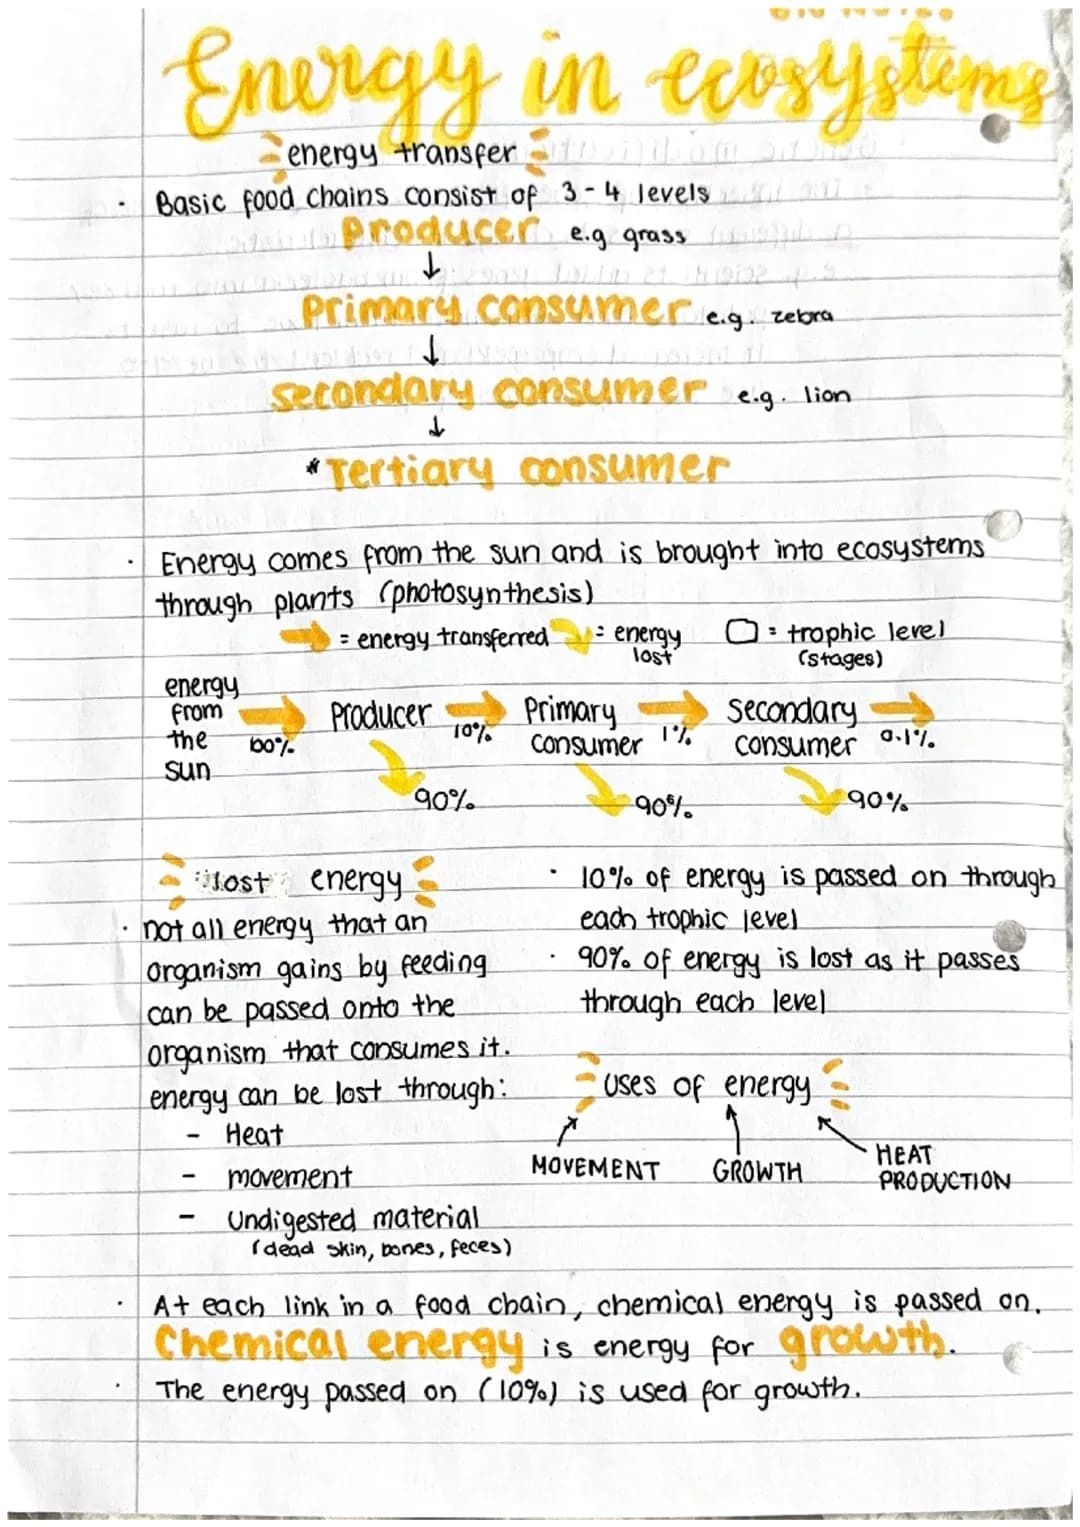 BIO NOTES
Energy in ecosystems
energy transfer
· Basic food chains consist of 3-4 levels
Producer e.g grass
↓
Primary consumer e.g. zebra
↓
secondary consumer e.g. lion
↓
*Tertiary consumer
· Energy comes from the sun and is brought into ecosystems
through plants (photosynthesis)
= energy transferred = energy lost = trophic level (stages)
energy from the sun 100% Producer 10% Primary consumer 1% secondary consumer 0.1%
90% 90% 90%
lost energy
· not all energy that an
organism gains by feeding
can be passed onto the
organism that consumes it.
energy can be lost through:
- Heat
- movement
- Undigested material
(dead skin, bones, feces)
· 10% of energy is passed on through
each trophic level
· 90% of energy is lost as it passes
through each level
uses of energy
MOVEMENT GROWTH HEAT PRODUCTION
· At each link in a food chain, chemical energy is passed on.
Chemical energy is energy for growth.
· The energy passed on (10%) is used for growth.